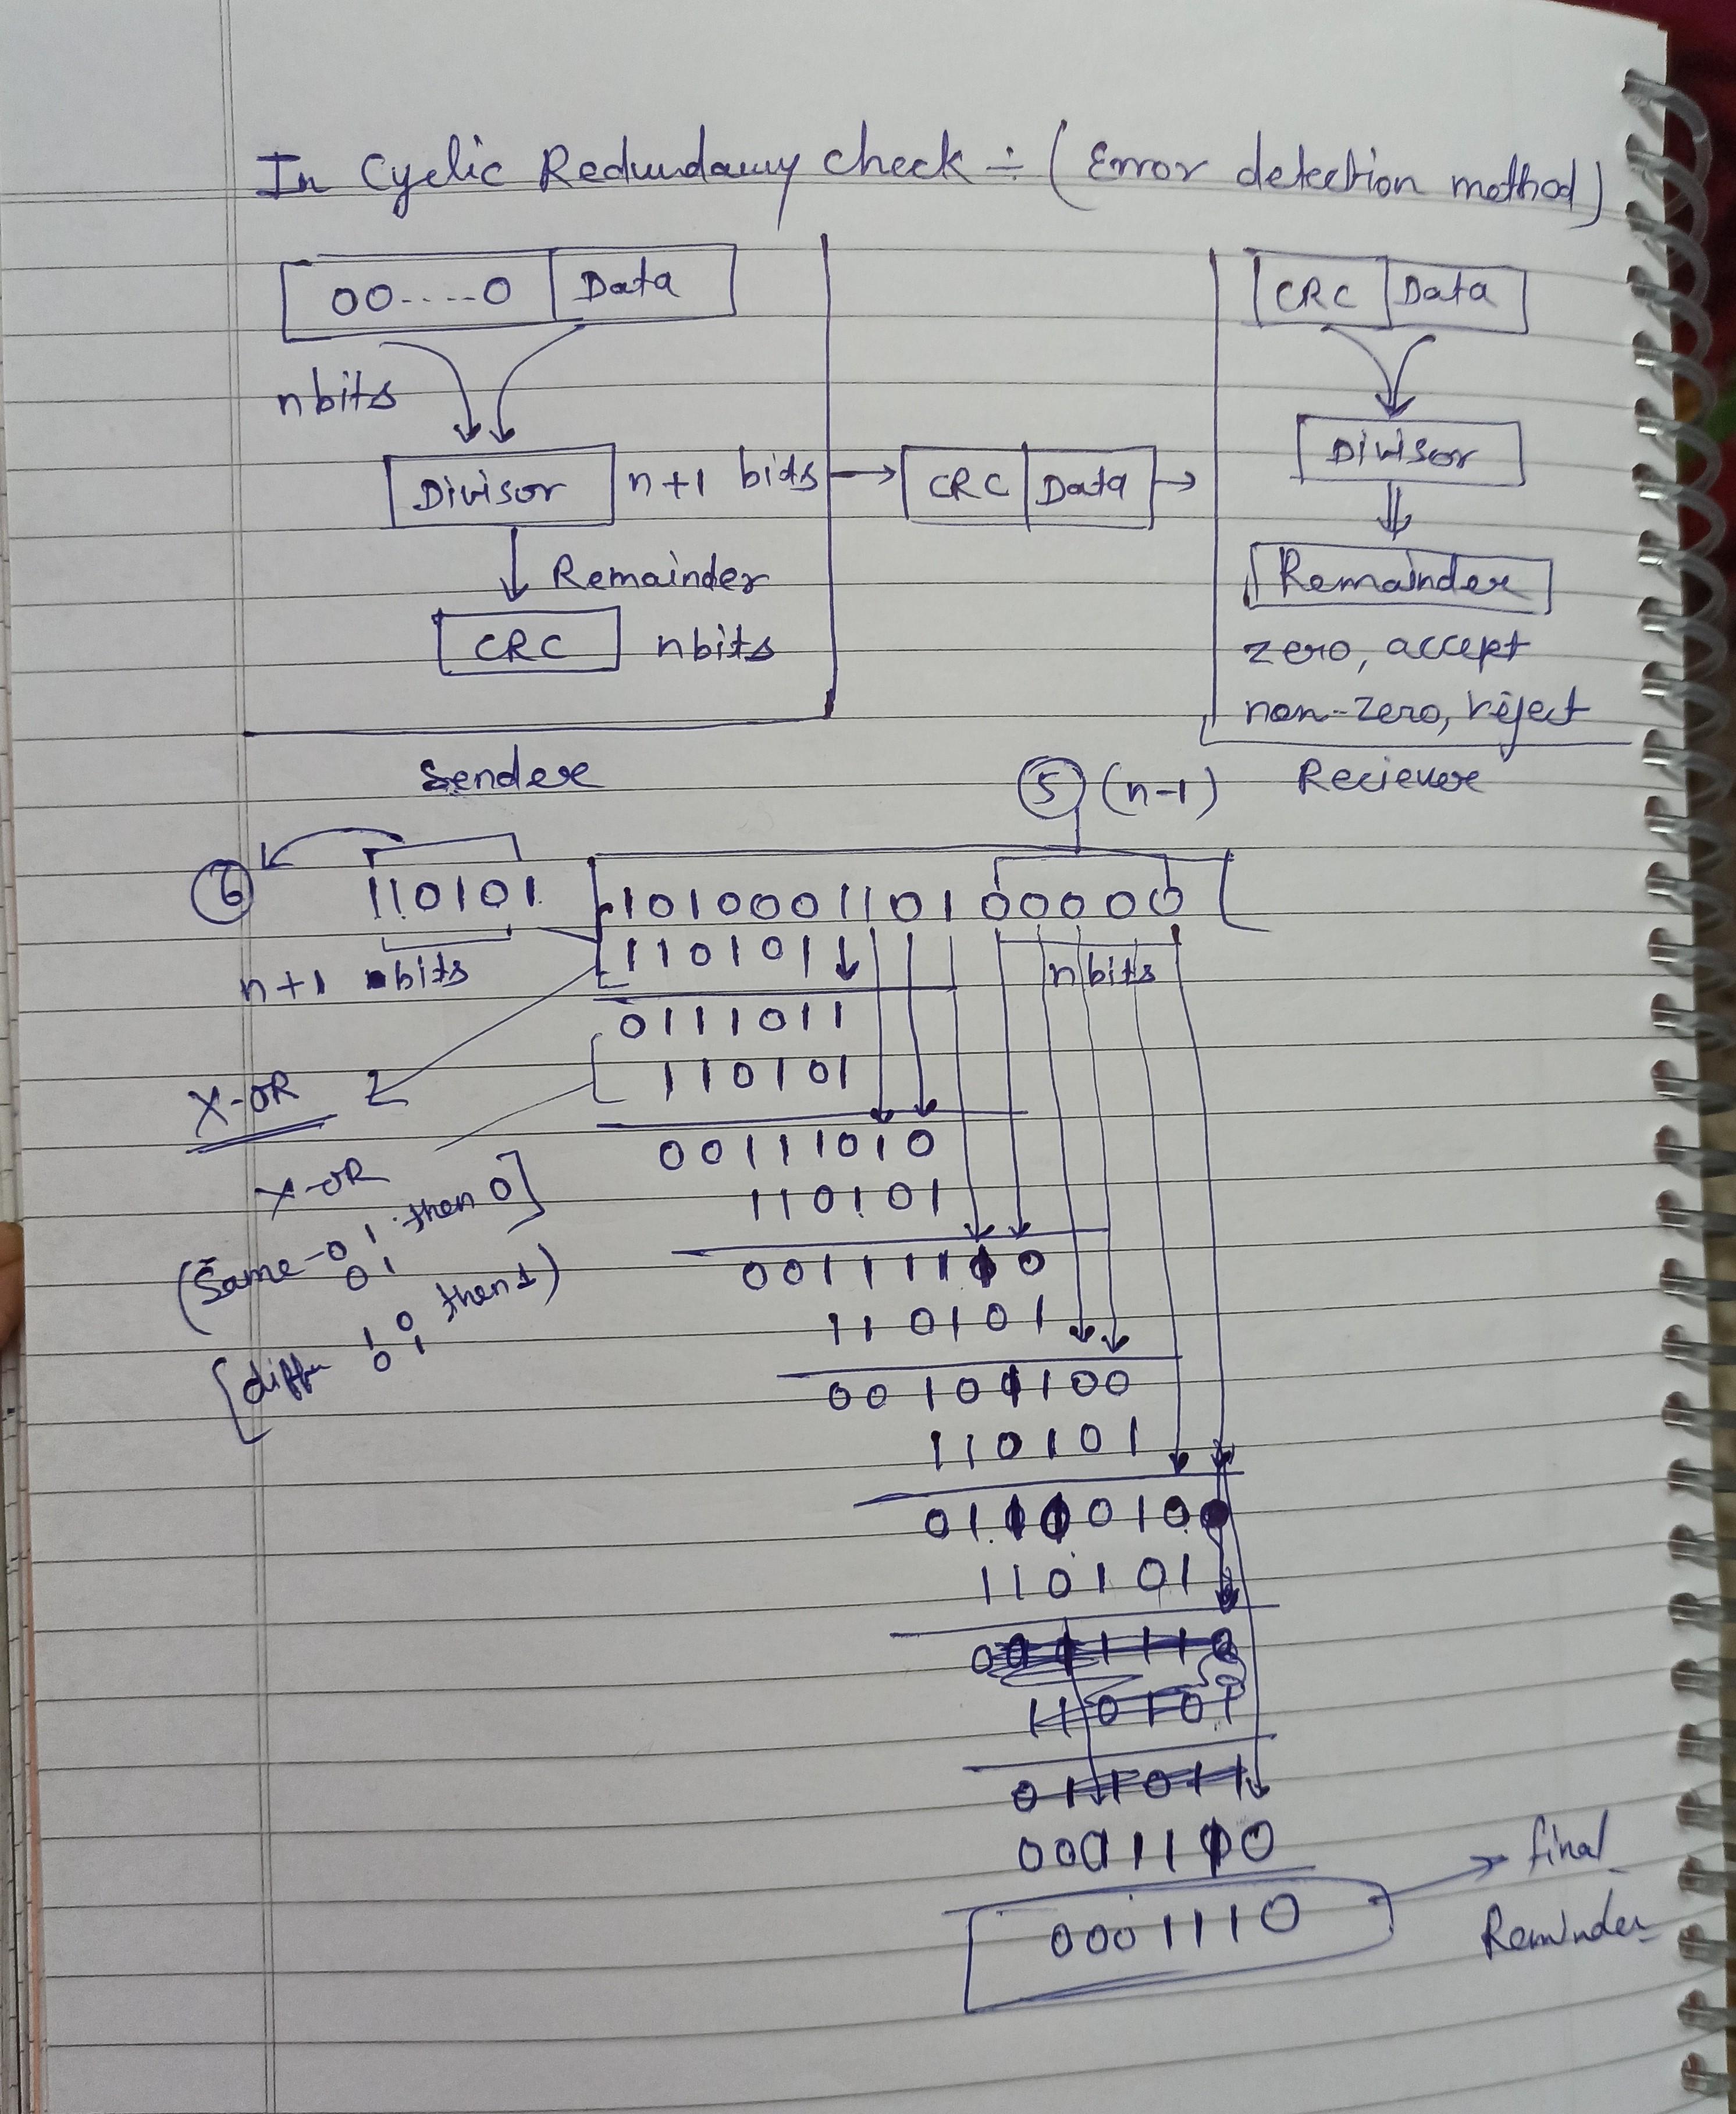 In Cyclic Redundancy check ÷ (Error detection method)
00.....0 Data
CRC Data
n bits
Divisor n+1 bits → CRC Data →
Divisor
Remainder
Remainder
CRC n bits
zero, accept
non-zero, reject
Sender
5 (n-1) Reciever
6 110101 101000110100000
n+1 bits
110101
n bits
0111011
110101
X-OR
00111010
X-OR
110101
(Same - 0 1 then 0]
0 1
00111110
110101
[diffn 1 0 then 1)
0 1
00101100
110101
01110100
110101
0001110
110101
011011
0001110
0001110
final
Reminder